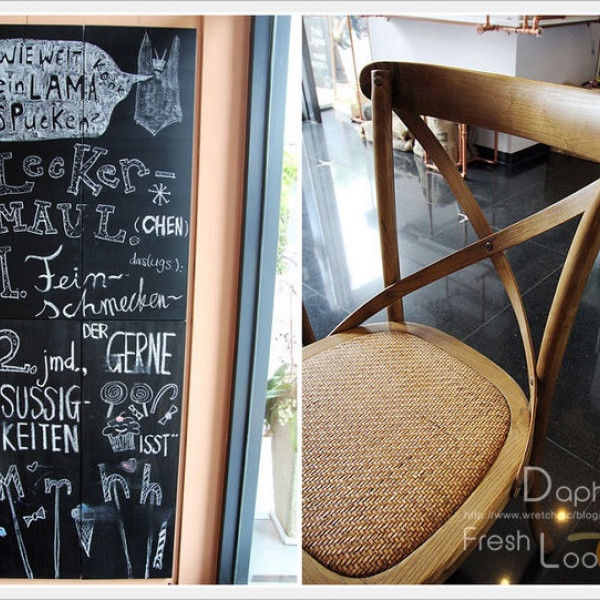 WIE WEIT
ein LAMA
SPUCKEN?
LecKer-
MAUL.(CHEN)
das(ugs.):
1. Fein-
schmecker
DER
2. jmd., GERNE
SÜSSIG-
KEITEN ISST"
M r h h
Daph
http://www.wretch.cc/blog/
Fresh Loo